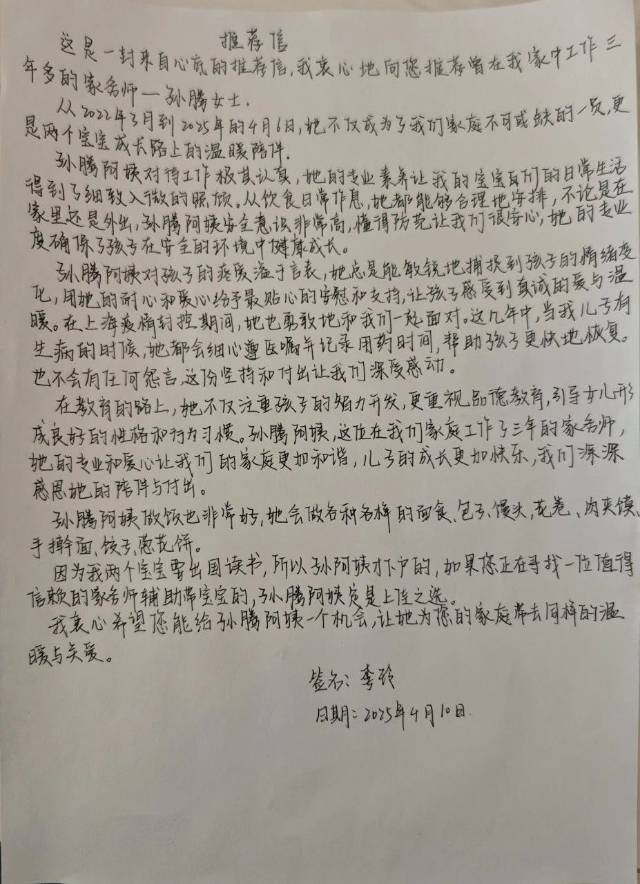 推荐信
这是一封来自心底的推荐信,我衷心地向您推荐曾在我家中工作三
年多的家务师——孙腾女士.
从2022年3月到2025年的4月6日,她不仅成为了我们家庭不可或缺的一员,更
是两个宝宝成长路上的温暖陪伴.
孙腾阿姨对待工作极其认真,她的专业素养让我的宝宝们的日常生活
得到了细致入微的照顾,从饮食日常作息,她都能够合理地安排,不论是在
家里还是外出,孙腾阿姨安全意识非常高,懂得防范让我们很安心,她的专业
度确保了孩子在安全的环境中健康成长。
孙腾阿姨对孩子的疼爱溢于言表,她总是能敏锐地捕捉到孩子的情绪变
化,用她的耐心和爱心给予最贴心的安慰和支持,让孩子感受到真诚的爱与温
暖。在上海疫情封控期间,她也勇敢地和我们一起面对。这几年中,当我儿子有
生病的时候,她都会细心遵医嘱并记录用药时间,帮助孩子更快地恢复。
也不会有任何怨言,这份坚持和付出让我们深受感动。
在教育的路上,她不仅注重孩子的智力开发,更重视品德教育,引导女儿形
成良好的性格和行为习惯。孙腾阿姨,这位在我们家庭工作了三年的家务师,
她的专业和爱心让我们的家庭更加和谐,儿子的成长更加快乐,我们深深
感恩她的陪伴与付出。
孙腾阿姨做饭也非常好,她会做各种各样的面食、包子、馒头、花卷、肉夹馍、
手擀面、饺子、葱花饼。
因为我两个宝宝要出国读书,所以孙阿姨才下户的,如果您正在寻找一位值得
信赖的家务师辅助带宝宝的,孙腾阿姨负是上佳之选。
我衷心希望您能给孙腾阿姨一个机会,让她为您的家庭带去同样的温
暖与关爱。
签名:李玲
日期:2025年4月10日.